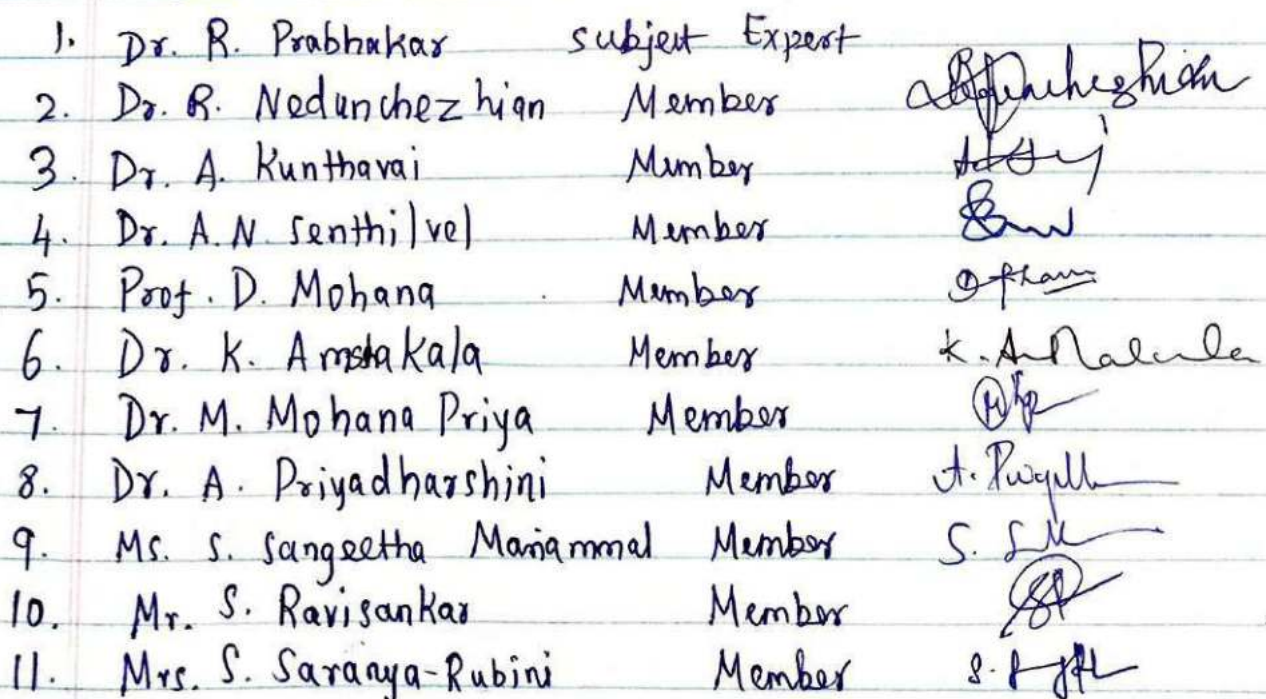 1. Dr. R. Prabhakar subject Expert
2. Dr. R. Nedunchezhian Member
3. Dr. A. Kunthavai Member
4. Dr. A.N. Senthilvel Member
5. Prof. D. Mohana Member
6. Dr. K. Member K.
7. Dr. M. Mohana Priya Member
8. Dr. A. Priyadharshini Member A.
9. Ms. S. Sangeetha Mariammal Member S.
10. Mr. S. Ravisankar Member
11. Mrs. S. Saranya-Rubini Member S.